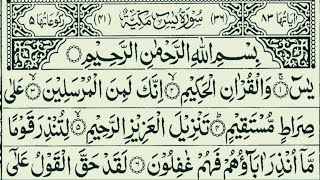 اٰیَاتُهَا ٨٣ (٣٦) سُوْرَةُ یٰسٓ مَكِّیَّةٌ (٤١) رُكُوْعَاتُهَا ٥
بِسْمِ اللهِ الرَّحْمٰنِ الرَّحِیْمِ
یٰسٓ ۝١ وَالْقُرْاٰنِ الْحَكِیْمِ ۝٢ اِنَّكَ لَمِنَ الْمُرْسَلِیْنَ ۝٣ عَلٰى
صِرَاطٍ مُّسْتَقِیْمٍ ۝٤ تَنْزِیْلَ الْعَزِیْزِ الرَّحِیْمِ ۝٥ لِتُنْذِرَ قَوْمًا
مَّاۤ اُنْذِرَ اٰبَآؤُهُمْ فَهُمْ غٰفِلُوْنَ ۝٦ لَقَدْ حَقَّ الْقَوْلُ عَلٰۤى